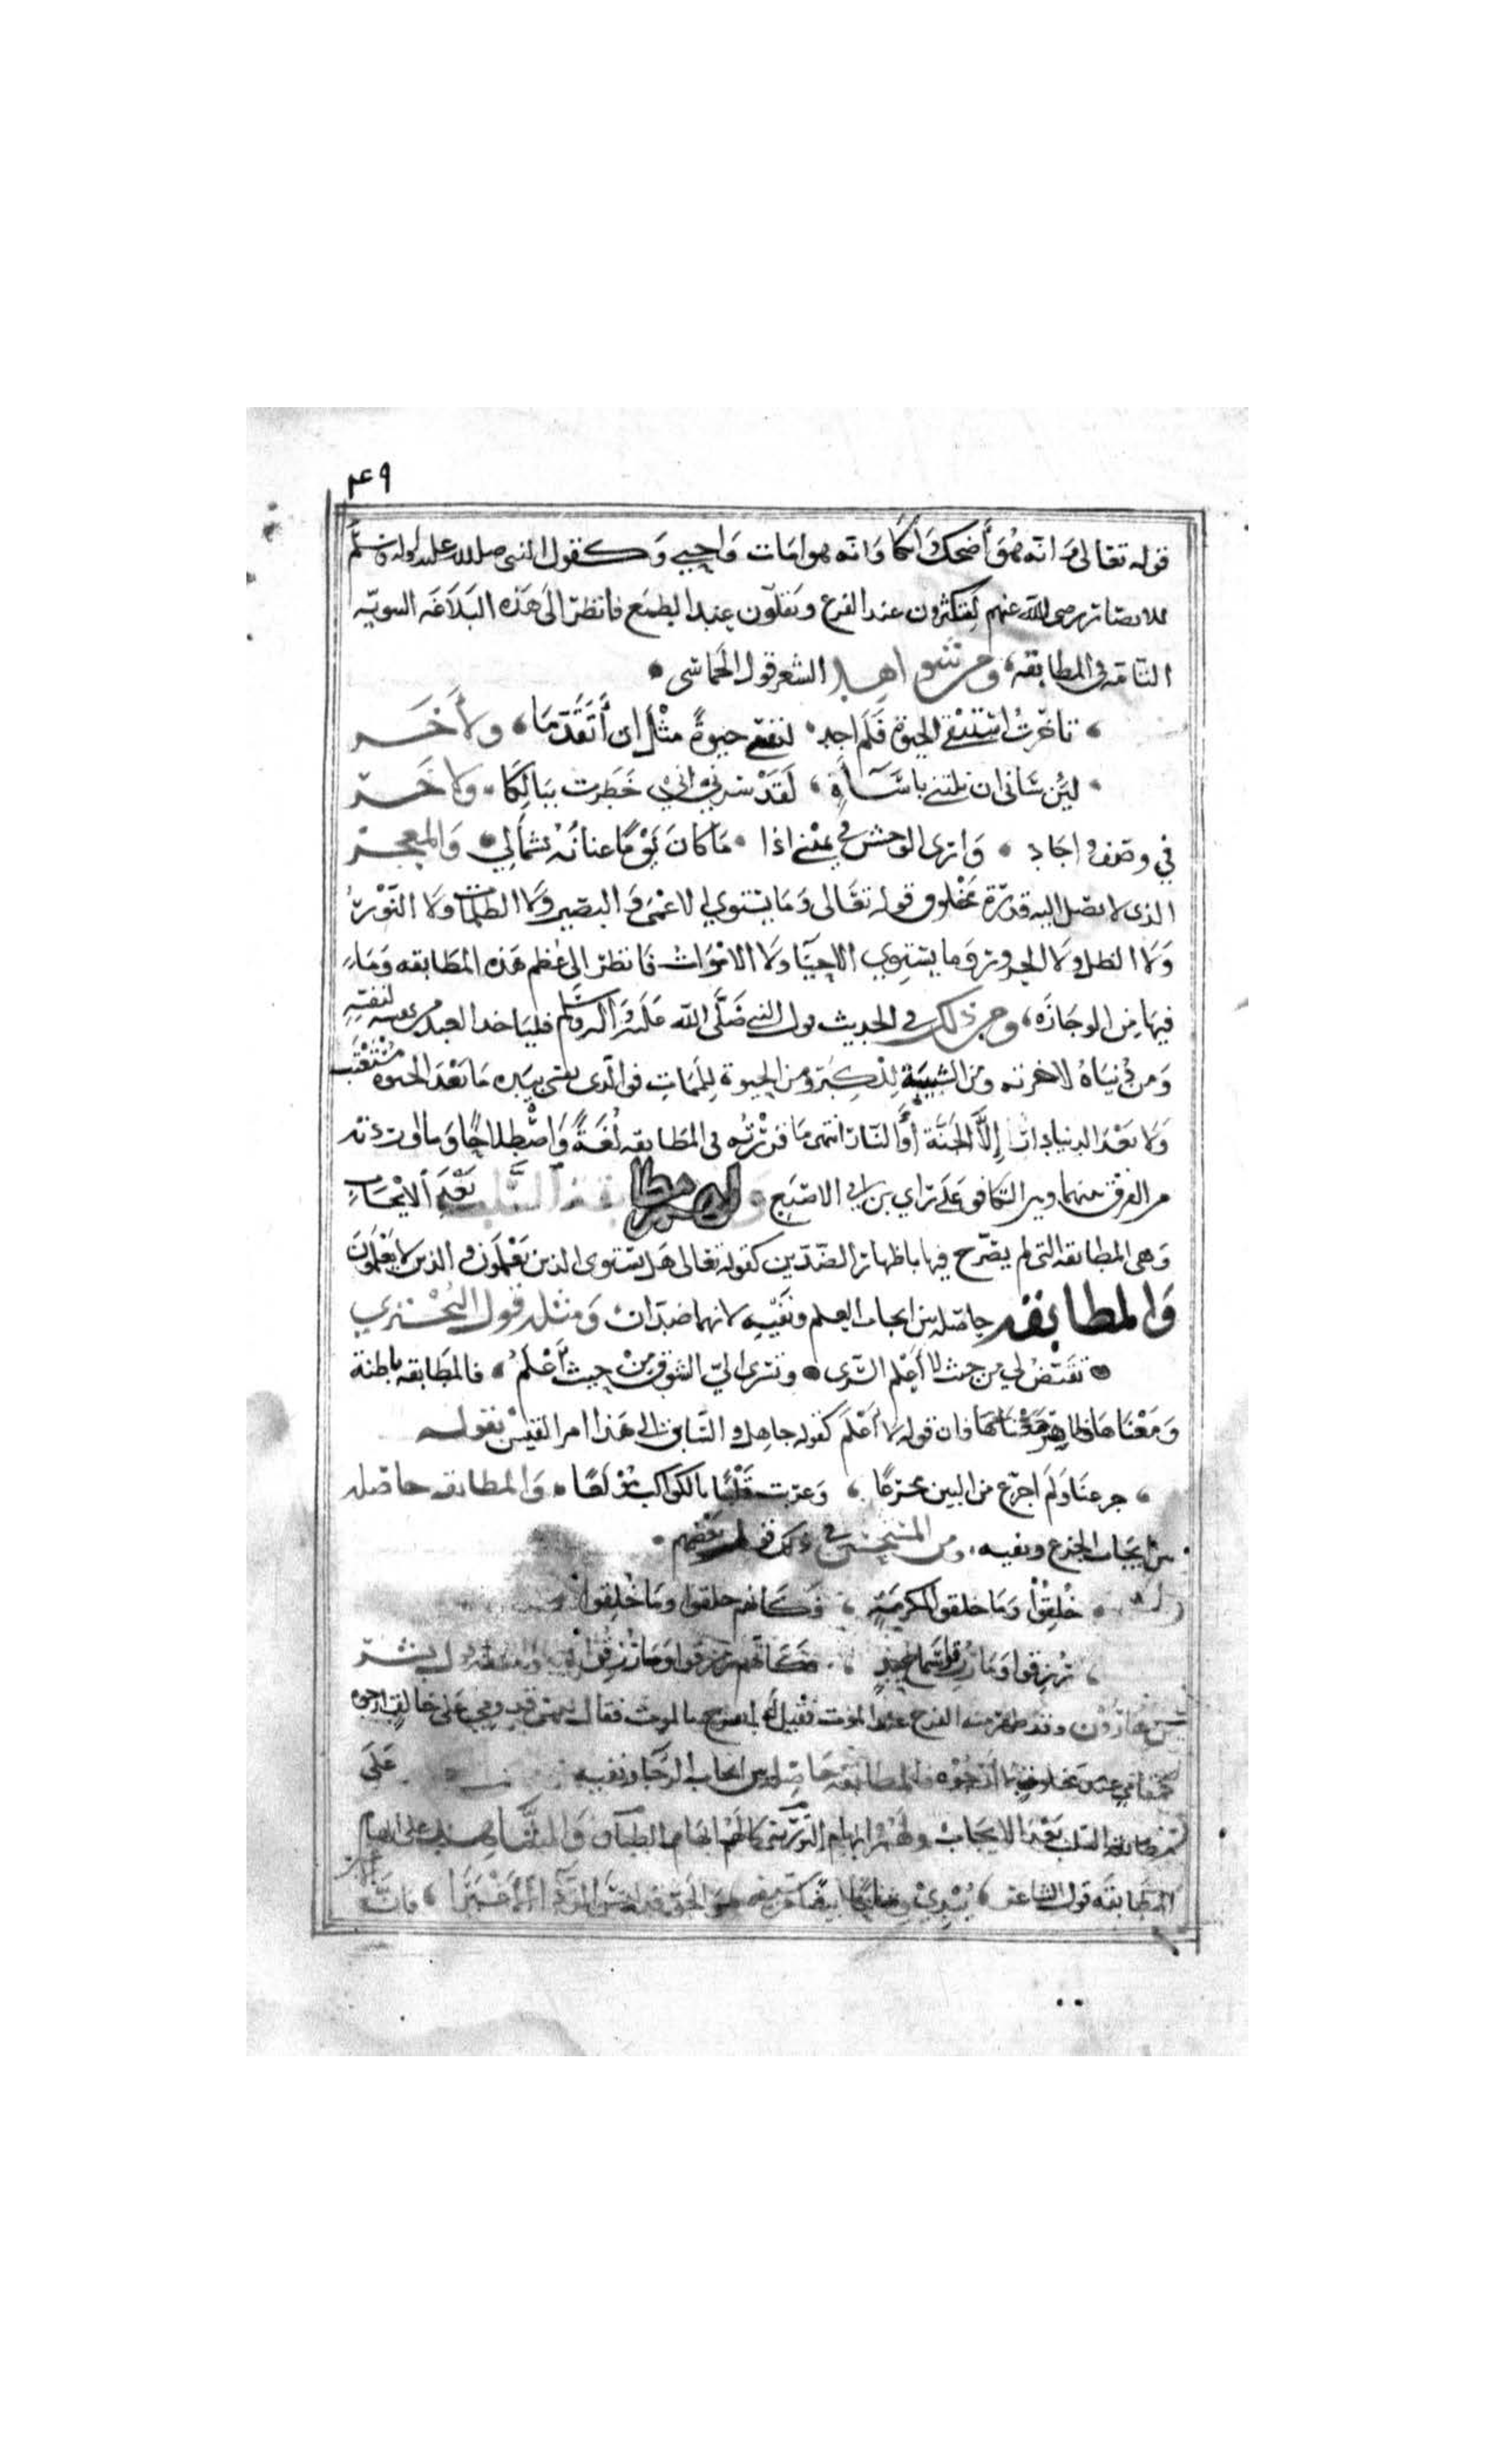 ٤٩
قوله تعالى وانه هو أضحك وابكا وانه هو امات واحيى وكقول النبي صلى الله عليه واله وسلم
للانصار رضي الله عنهم لتكثرون عند الفزع وتقلون عند الطمع فانظر الى هذه البلاغه النبويه
التامه في المطابقه، ومن شواهد الشعر قول الحماسي
تاخرت استبقي الحيوة فلم اجد لنفسي حيوة مثل ان أتقدما، ولأخر
لئن ساني ان نلتني بمساة، لقد سرني اني خطرت ببالكا ولاخر
في وصف واجاد وارى الوحش في يمني اذا ما كان يوما عنانه بشمالي والمعجز
الذي لا يصل اليه قدرة مخلوق قوله تعالى وما يستوي الاعمى والبصير ولا الظلمات ولا النور
ولا الظل ولا الحرور وما يستوي الاحيا ولا الاموات فانظر الى عظم هذه المطابقه وما
فيها من الوجازه، ومن ذلك في الحديث قول النبي صلى الله عليه وآله وسلم فلياخذ العبد من نفسه لنفسه
ومن دنياه لاخرته ومن الشبيبة للكبر ومن الحيوة للممات فوالذي نفسي بيده ما بعد الحيوة مستعتب
ولا بعد الدنيا دار إلا الجنة أو النار انتهى ما قررته في المطابقه لغة واصطلاحا وما اوردته
من الفرق بينهما وبين التكافو على راي بن ابي الاصبع والمطابقة السلب بعد الايجاب
وهي المطابقه التي لم يصرح فيها باظهار الضدين كقوله تعالى هل يستوي الذين يعلمون والذين لا يعلمون
والمطابقه حاصله بين ايجاب العلم ونفيه لانهما ضدان ومثله قول البحتري
تقيض لي من حيث لا أعلم النوى وتسرى الي الشوق من حيث أعلم، فالمطابقه باطنة
ومعناها ظاهر فان قوله لا أعلم كقوله جاهل والسابق الى هذا امرا القيس بقوله
جزعت ولم اجزع من البين مجزعا، وعزيت قلبا بالكواكب مولعا والمطابقه حاصله
بين ايجاب الجزع ونفيه، ومن المستحسن في ذلك قول بعضهم
خلقوا وما خلقوا لمكرمة، فكانهم خلقوا وما خلقوا
رزقوا وما رزقوا سماح يد، فكانهم رزقوا وما رزقوا ومنه قول بشر
بن هارون وقد ظهر منه الفرح عند الموت فقيل له اتفرح بالموت فقال ليس قدومي على خالق ارجوه
كمقامي عند مخلوق لا أرجوه فالمطابقه حاصله بين ايجاب الرجا ونفيه على
مطابقة السلب بعد الايجاب ولهم ايهام التورية كالهم ايهام الطباق على ايهام
المطابقه قول الشاعر يبدي وشاحا ابيضا من سيبه والجو قد لبس الرداء الأغبرا، فان